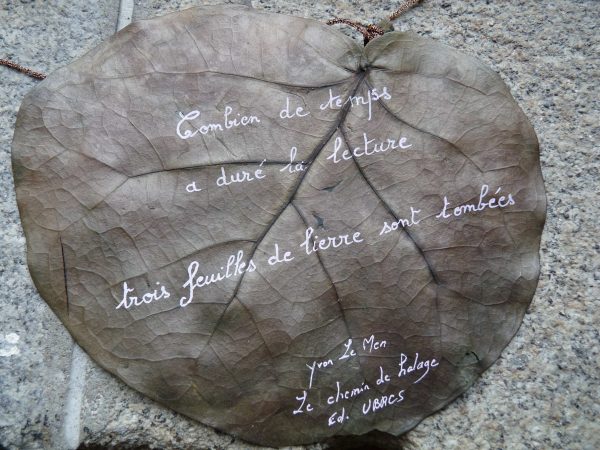 Combien de temps
a duré la lecture
trois feuilles de lierre sont tombées
Yvon Le Men
Le chemin de halage
Ed. UBACS